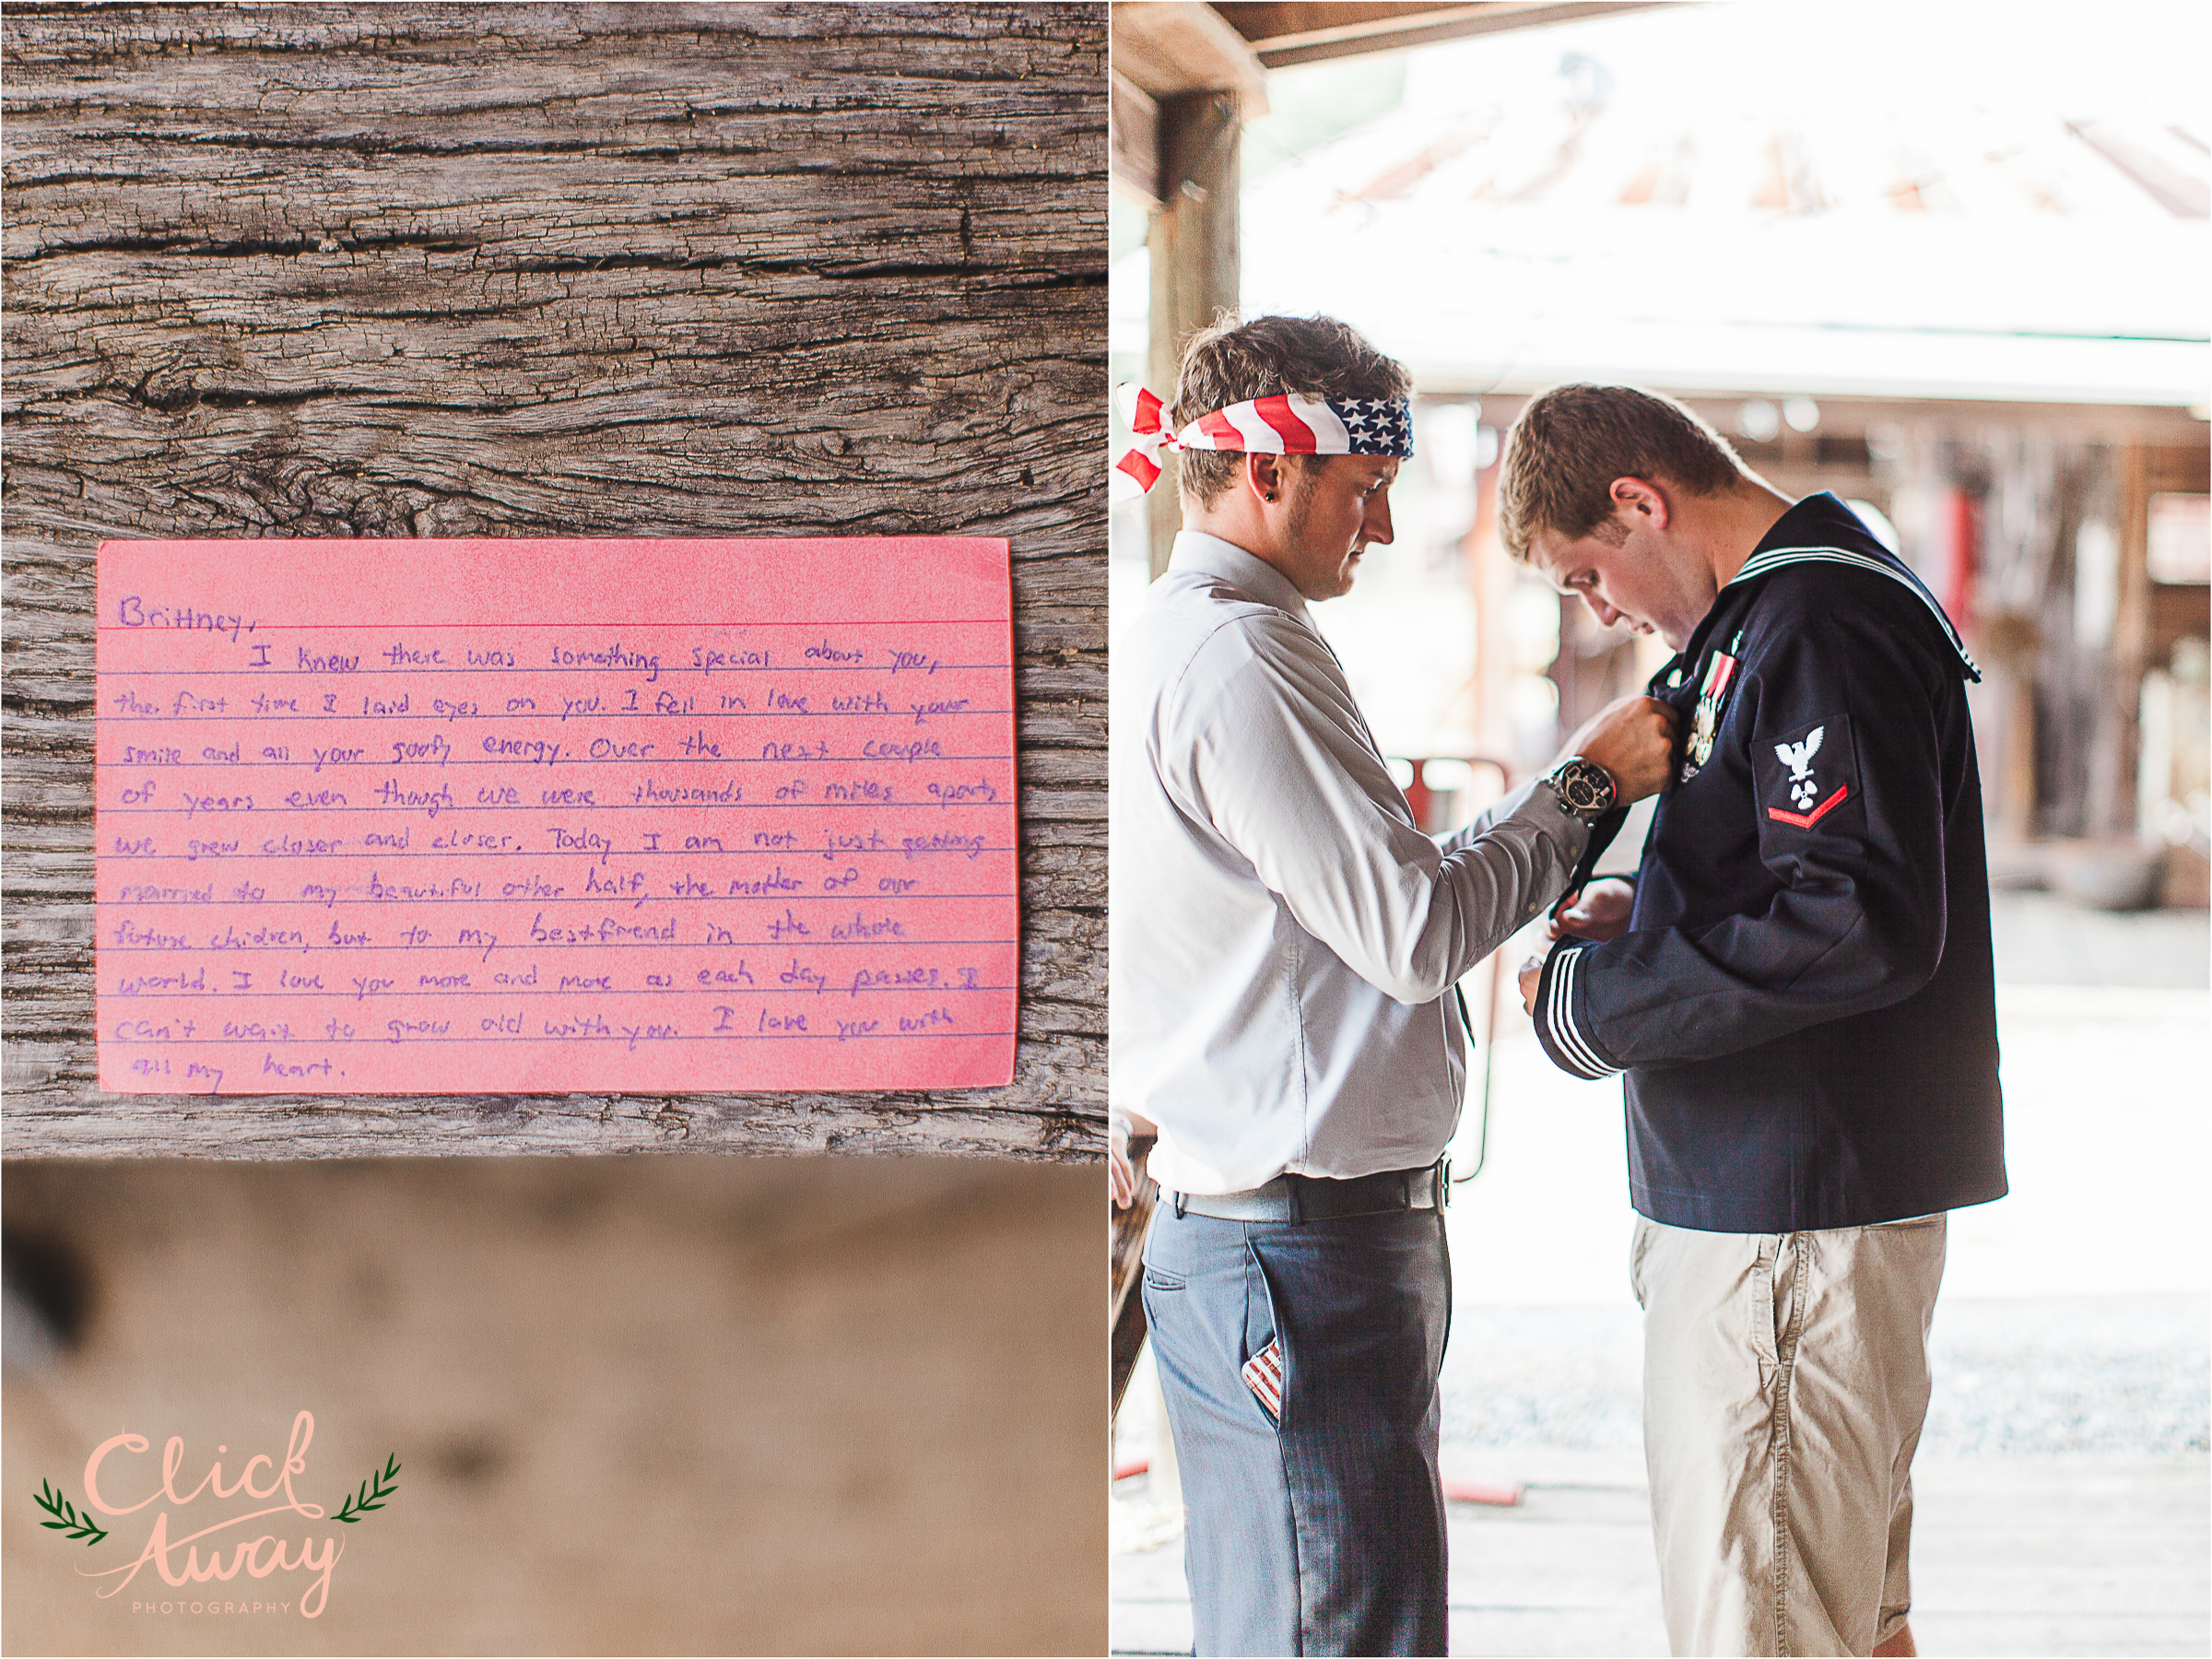 Brittney,
I knew there was something special about you,
the first time I laid eyes on you. I fell in love with your
smile and all your goofy energy. Over the next couple
of years even though we were thousands of miles apart,
we grew closer and closer. Today I am not just getting
married to my beautiful other half, the mother of our
future children, but to my bestfriend in the whole
world. I love you more and more as each day passes. I
can't wait to grow old with you. I love you with
all my heart.
Click
Away
PHOTOGRAPHY